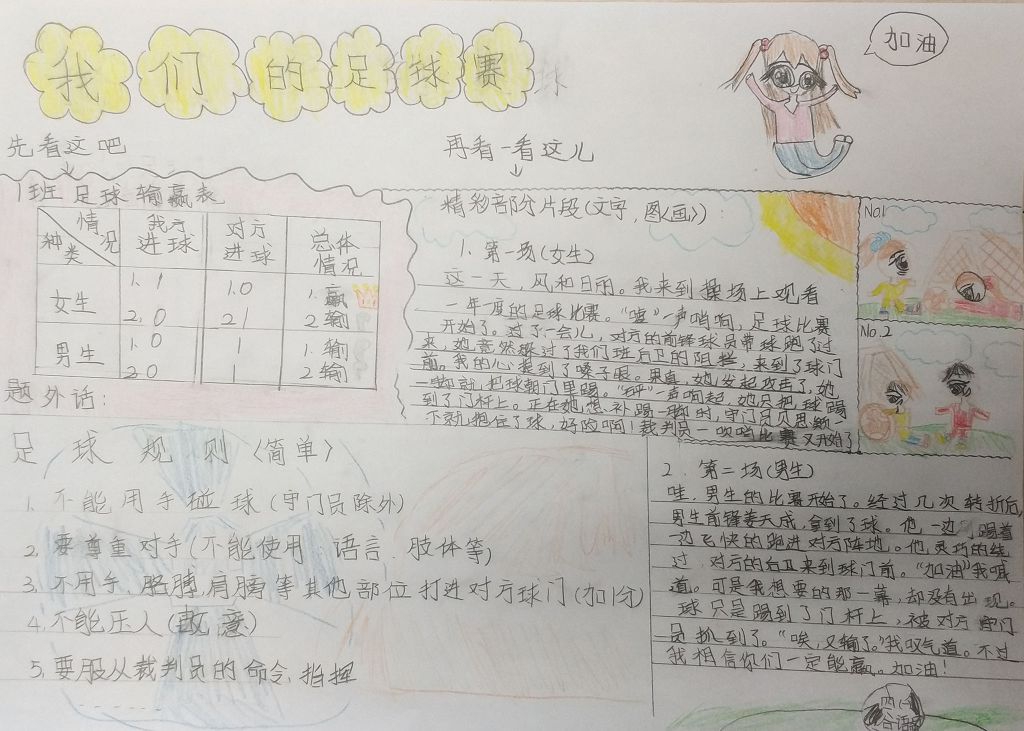 我们的足球赛
加油
先看这吧
再看一看这儿
1班足球输赢表
情况
种类
我方进球
对方进球
总体情况
女生
1. 1
1. 0
1. 赢
2. 0
2. 1
2 输
男生
1. 0
1
1. 输
2 0
1
2. 输
题外话：
精彩部分片段(文字,图〈画〉)：
1. 第一场(女生)
这一天，风和日丽。我来到操场上观看
一年一度的足球比赛。“嘘”一声哨响，足球比赛
开始了。过了一会儿，对方的前锋球员带球跑了过
来，她竟然躲过了我们班后卫的阻拦，来到了球门
前。我的心提到了嗓子眼。果真，她发起攻击了，她
一脚就把球朝门里踢。“砰”一声响起，她只把球踢
到了门杆上。正在她想补踢一脚时，守门员贝思颖一
下就抱住了球，好险啊！裁判员一吹哨比赛又开始了
No.1
No.2
足球规则〈简单〉
1. 不能用手碰球(守门员除外)
2. 要尊重对手(不能使用：语言．肢体等)
3. 不用手、胳膊,肩膀等其他部位打进对方球门(加1分)
4. 不能压人(故意)
5. 要服从裁判员的命令,指挥
2. 第二场(男生)
哇，男生的比赛开始了。经过几次转折后,
男生前锋姜天成，拿到了球。他，一边踢着
一边飞快的跑进对方阵地。他，灵巧的绕
过，对方的后卫来到球门前。“加油”我喊
道。可是我想要的那一幕，却没有出现。
球只是踢到了门杆上，被对方守门
员扒到了。“唉，又输了。”我叹气道。不过
我相信你们一定能赢。加油！
四（一）
谷语